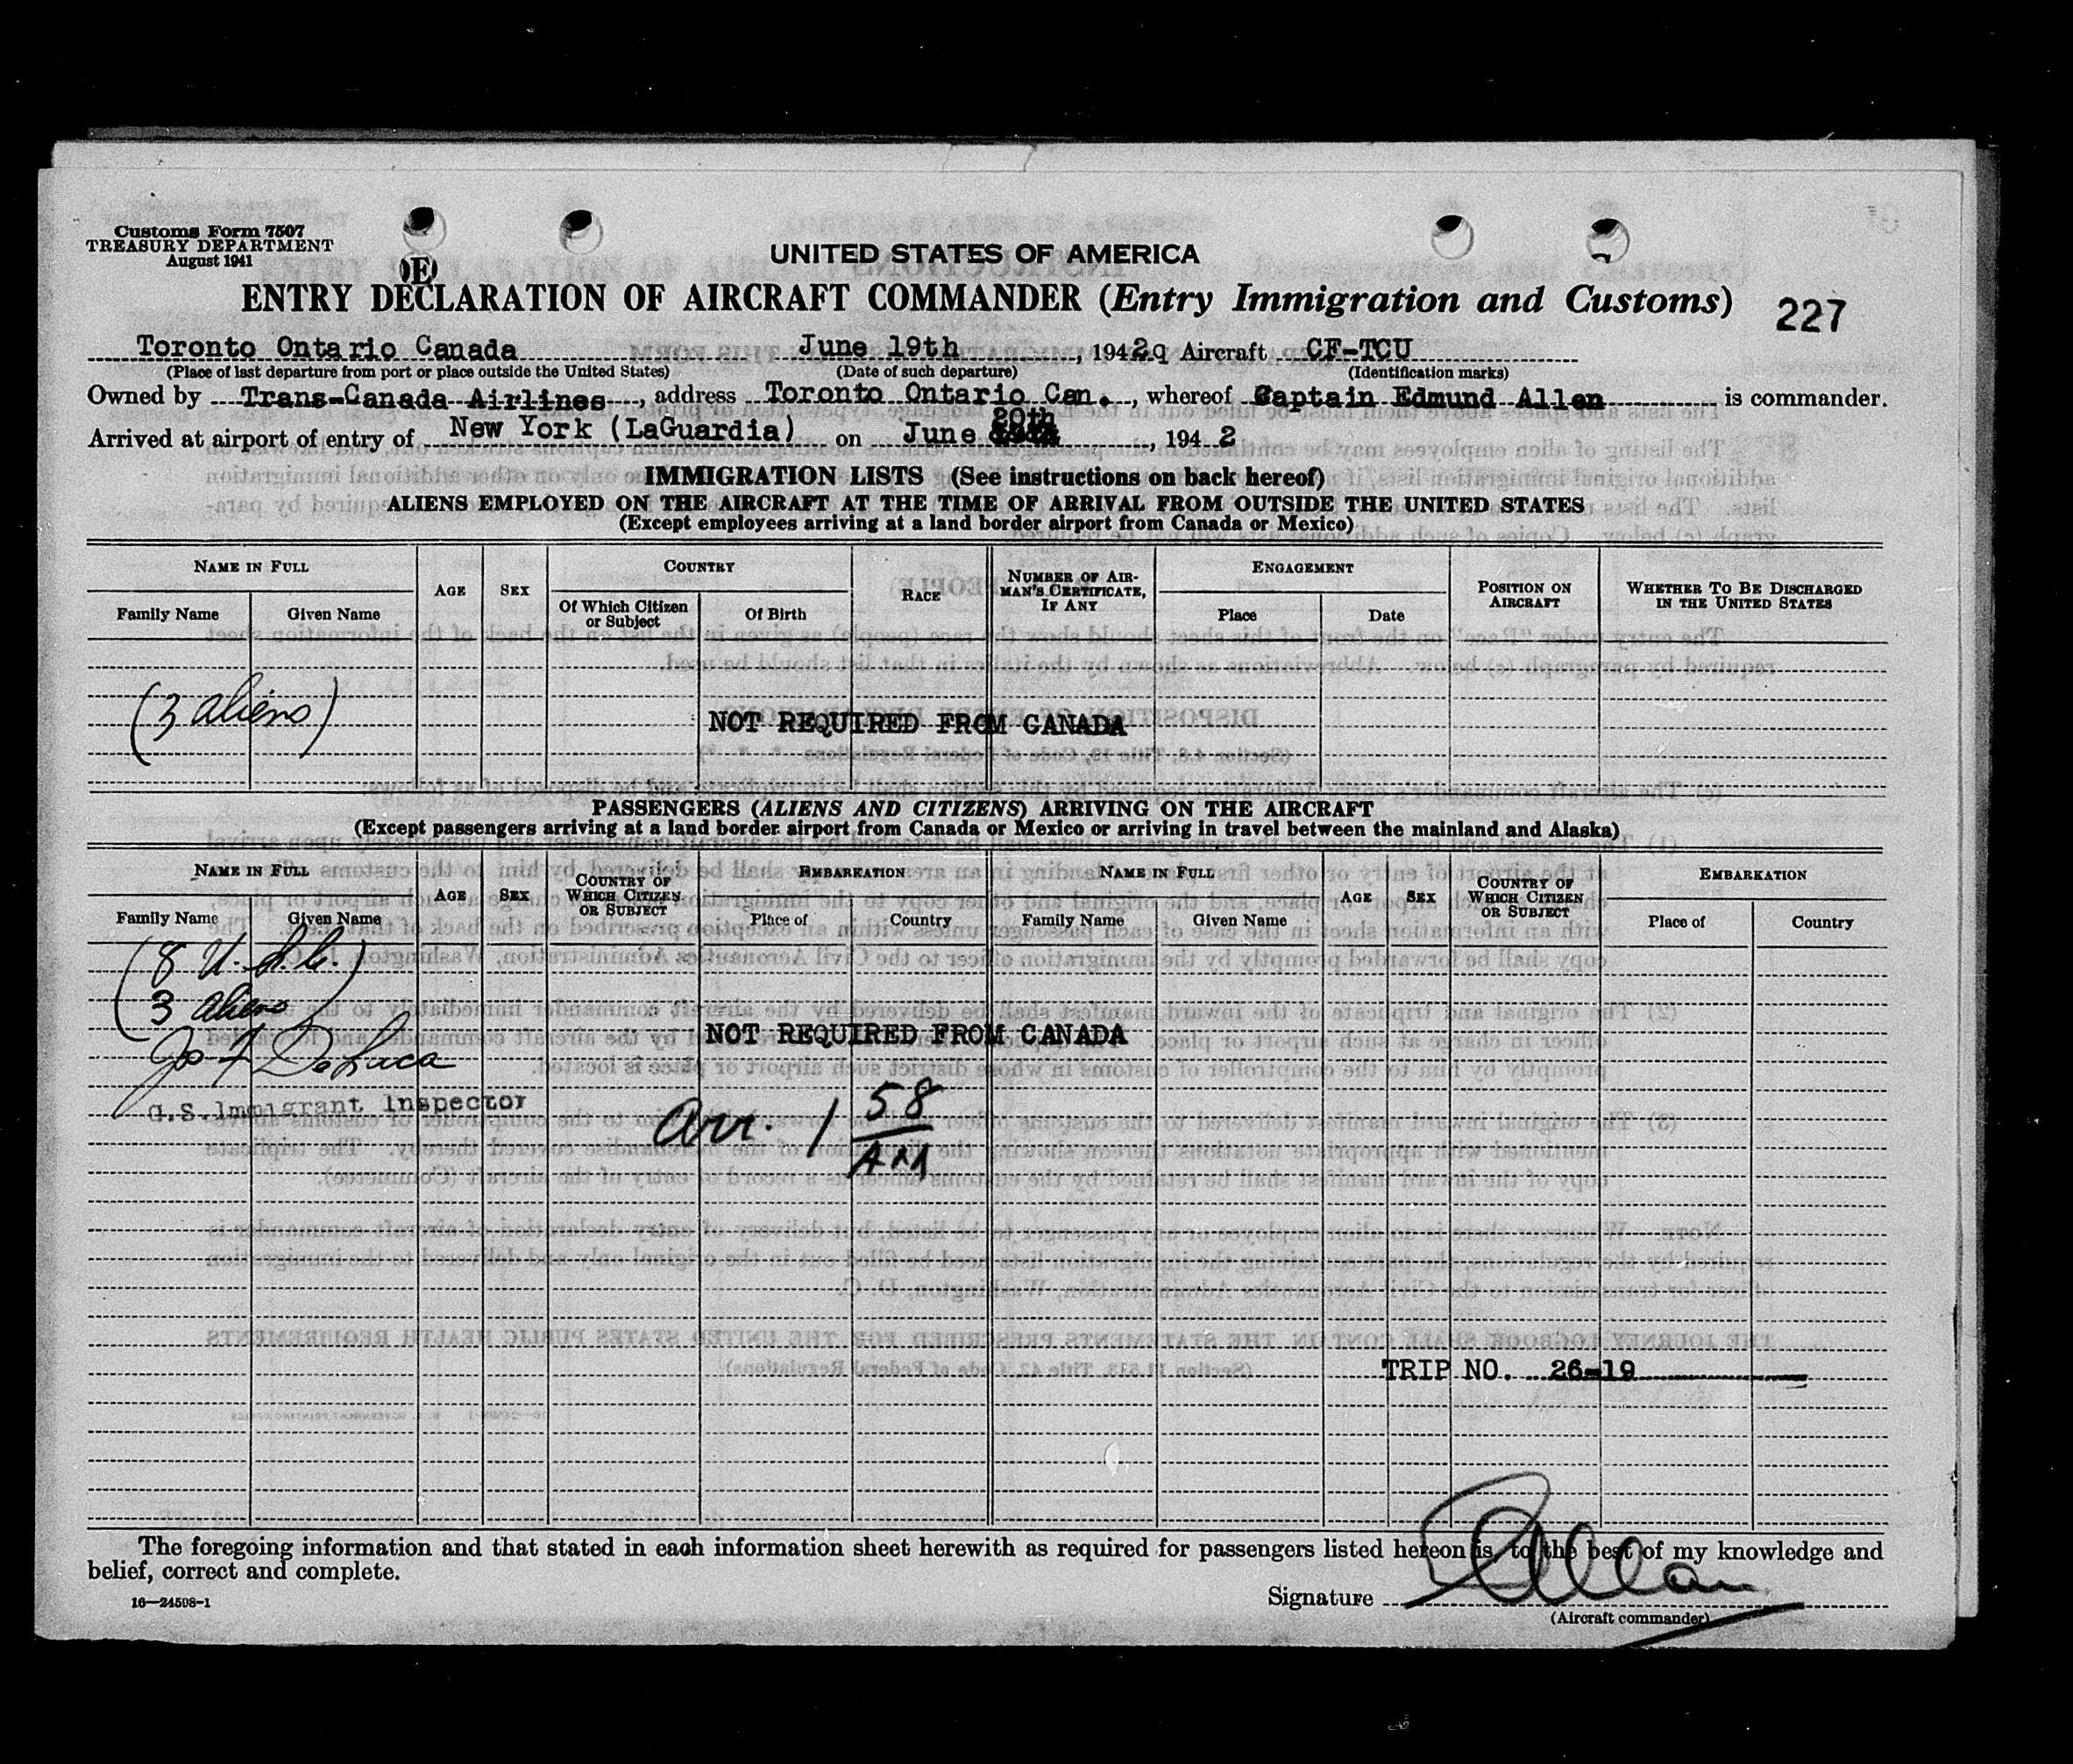 Customs Form 7507
TREASURY DEPARTMENT
August 1941
(E)
UNITED STATES OF AMERICA
ENTRY DECLARATION OF AIRCRAFT COMMANDER (Entry Immigration and Customs)
227
Toronto Ontario Canada June 19th, 1942 Aircraft CF-TCU
(Place of last departure from port or place outside the United States) (Date of such departure) (Identification marks)
Owned by Trans-Canada Airlines, address Toronto Ontario Can., whereof Captain Edmund Allen is commander.
Arrived at airport of entry of New York (LaGuardia) on June 20th, 1942
IMMIGRATION LISTS (See instructions on back hereof)
ALIENS EMPLOYED ON THE AIRCRAFT AT THE TIME OF ARRIVAL FROM OUTSIDE THE UNITED STATES
(Except employees arriving at a land border airport from Canada or Mexico)
NAME IN FULL
Family Name Given Name
AGE
SEX
COUNTRY
Of Which Citizen or Subject
Of Birth
RACE
NUMBER OF AIR-
MAN'S CERTIFICATE,
IF ANY
ENGAGEMENT
Place Date
POSITION ON
AIRCRAFT
WHETHER TO BE DISCHARGED
IN THE UNITED STATES
(3 aliens)
NOT REQUIRED FROM CANADA
PASSENGERS (ALIENS AND CITIZENS) ARRIVING ON THE AIRCRAFT
(Except passengers arriving at a land border airport from Canada or Mexico or arriving in travel between the mainland and Alaska)
NAME IN FULL
Family Name Given Name
AGE
SEX
COUNTRY OF
WHICH CITIZEN
OR SUBJECT
EMBARKATION
Place of Country
NAME IN FULL
Family Name Given Name
AGE
SEX
COUNTRY OF
WHICH CITIZEN
OR SUBJECT
EMBARKATION
Place of Country
(8 U.S.C.)
3 aliens
NOT REQUIRED FROM CANADA
Jos F DeLuca
U.S. Immigrant Inspector
Arr. 1 58
AM
TRIP NO. 26-19
The foregoing information and that stated in each information sheet herewith as required for passengers listed hereon is, to the best of my knowledge and
belief, correct and complete.
16—24598-1
Signature E Allan
(Aircraft commander)